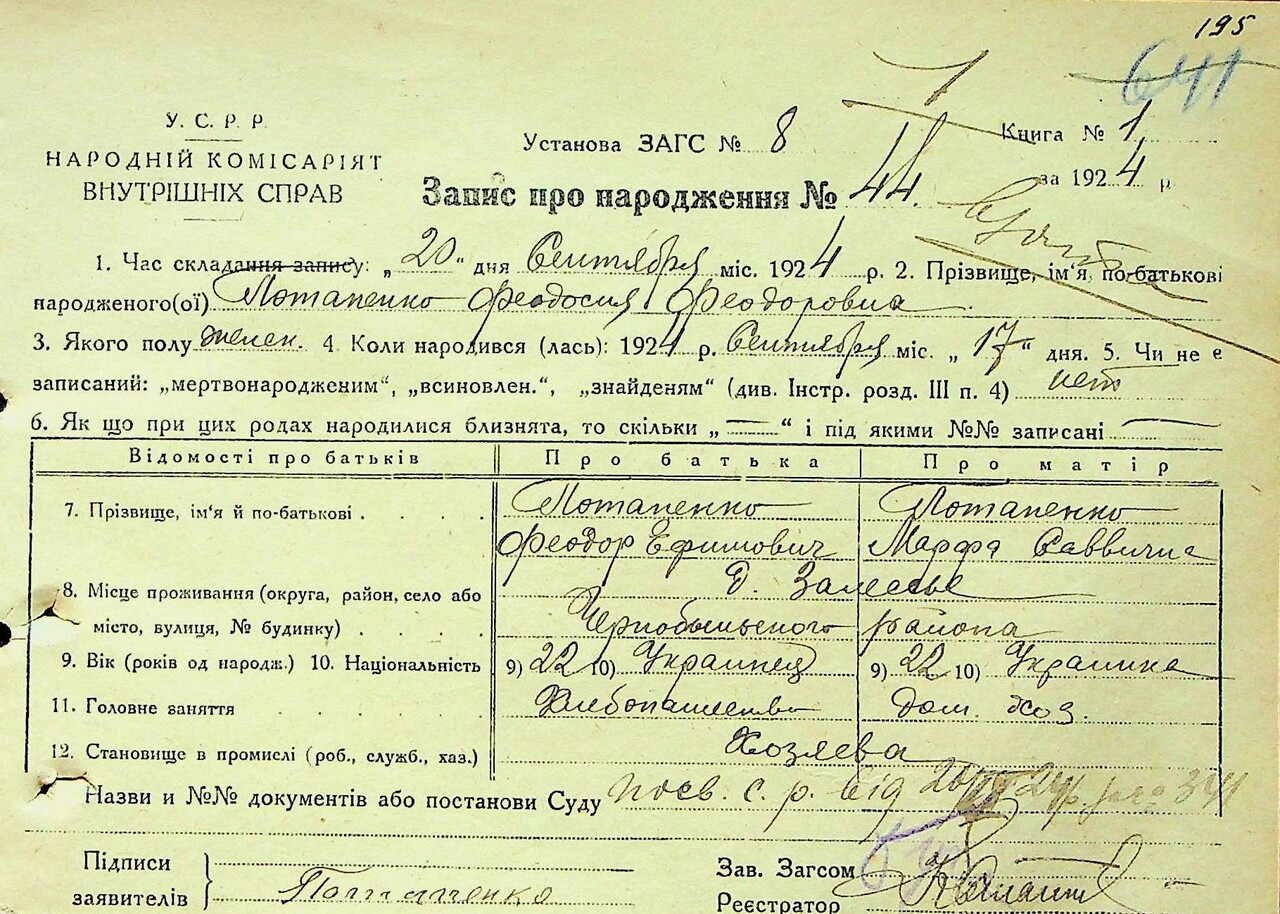 195
641
У. С. Р. Р.
НАРОДНІЙ КОМІСАРІЯТ
ВНУТРІШНІХ СПРАВ
Установа ЗАГС № 8
Книга № 1
за 1924 р.
Запис про народження № 44.
1. Час складання запису: „20“ дня Сентября міс. 1924 р. 2. Прізвище, ім'я, по-батькові
народженого(ої) Потапенко Феодосия Феодоровна
3. Якого полу женск. 4. Коли народився (лась): 1924 р. Сентября міс. „17“ дня. 5. Чи не є
записаний: „мертвонародженим“, „всиновлен.“, „знайденям“ (див. Інстр. розд. III п. 4) нет
6. Як що при цих родах народилися близнята, то скільки „—“ і під якими №№ записані —
Відомості про батьків Про батька Про матір
7. Прізвище, ім'я й по-батькові . . . . Потапенко Потапенко
Феодор Ефимович Марфа Саввична
8. Місце проживання (округа, район, село або д. Залесье
місто, вулиця, № будинку) . . . . Чернобыльского района
9. Вік (років од народж.) 10. Національність 9) 22 10) Украинец 9) 22 10) Украинка
11. Головне заняття . . . . . Хлебопашество дом. хоз.
12. Становище в промислі (роб., служб., хаз.) Хозяева
Назви и №№ документів або постанови Суду посв. с. р. від
Підписи
заявителів
Потапенко
Зав. Загсом
Реєстратор